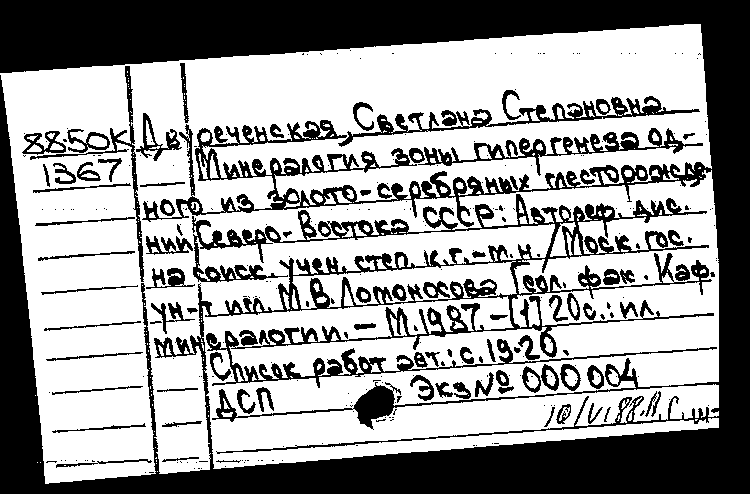 88-50К Двуреченская, Светлана Степановна.
1367 Минералогия зоны гипергенеза од-
ного из золото-серебряных месторожде-
ний Северо-Востока СССР: Автореф. дис.
на соиск. учен. степ. к.г.-м.н. / Моск. гос.
ун-т им. М.В.Ломоносова. Геол. фак. Каф.
минералогии. – М.1987. – [1] 20с.: ил.
Список работ авт.: с.19-20.
ДСП Экз № 000004